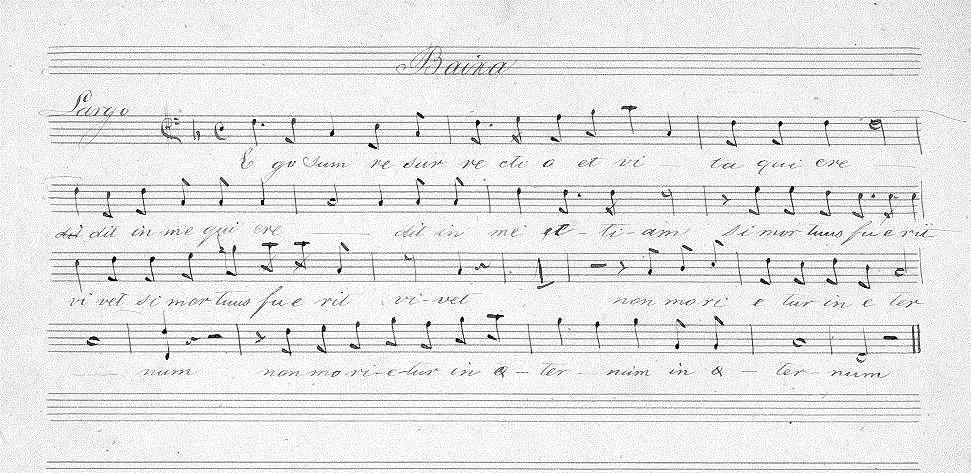 Baixa
Largo
E go sum re sur re cti o et vi ta qui cre
dit in me qui cre dit in me et - ti - am si mor tuus fu e rit
vi vet si mor tuus fu e rit vi - vet non mo ri e tur in e ter
num non mo ri - e - tur in a - ter - num in a - ter - num